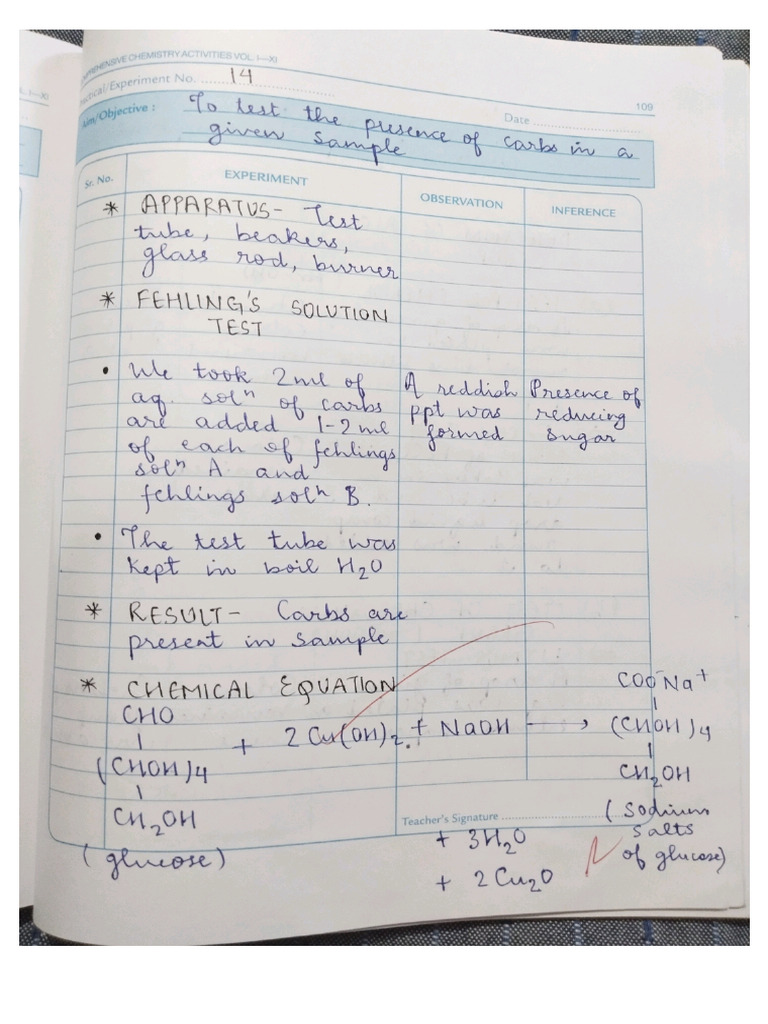 COMPREHENSIVE CHEMISTRY ACTIVITIES VOL. I—XI
L. I—XI
Practical/Experiment No. 14
109
Date
Aim/Objective : To test the presence of carbs in a
given sample
Sr. No. EXPERIMENT OBSERVATION INFERENCE
* APPARATUS- Test
tube, beakers,
glass rod, burner
* FEHLING'S SOLUTION
TEST
• We took 2ml of A reddish Presence of
aq. solⁿ of carbs ppt was reducing
are added 1-2ml formed sugar
of each of fehlings
solⁿ A and
fehlings solⁿ B.
• The test tube was
kept in boil H₂O
* RESULT- Carbs are
present in sample
* CHEMICAL EQUATION
CHO COO⁻Na⁺
(CHOH)4 + 2 Cu(OH)₂ + NaOH → (CHOH)4
CH₂OH CH₂OH
Teacher's Signature
(glucose) (Sodium
salts
of glucose)
+ 3H₂O
+ 2Cu₂O